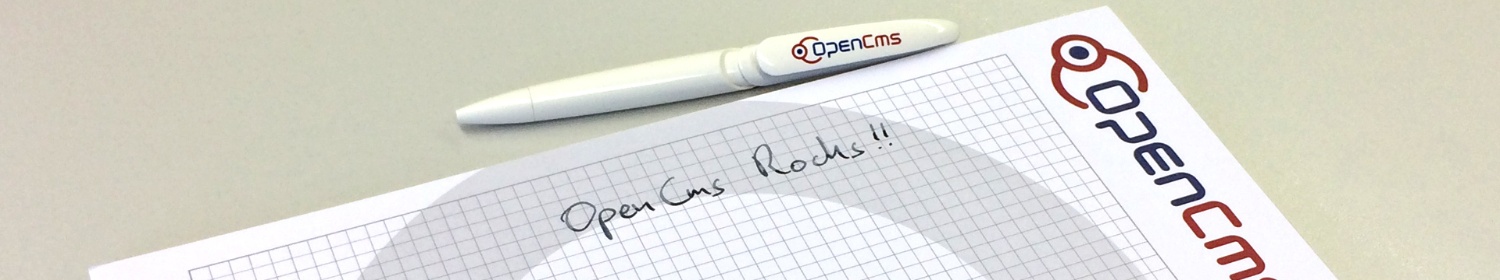 OpenCms
OpenCms
OpenCms Rocks!!